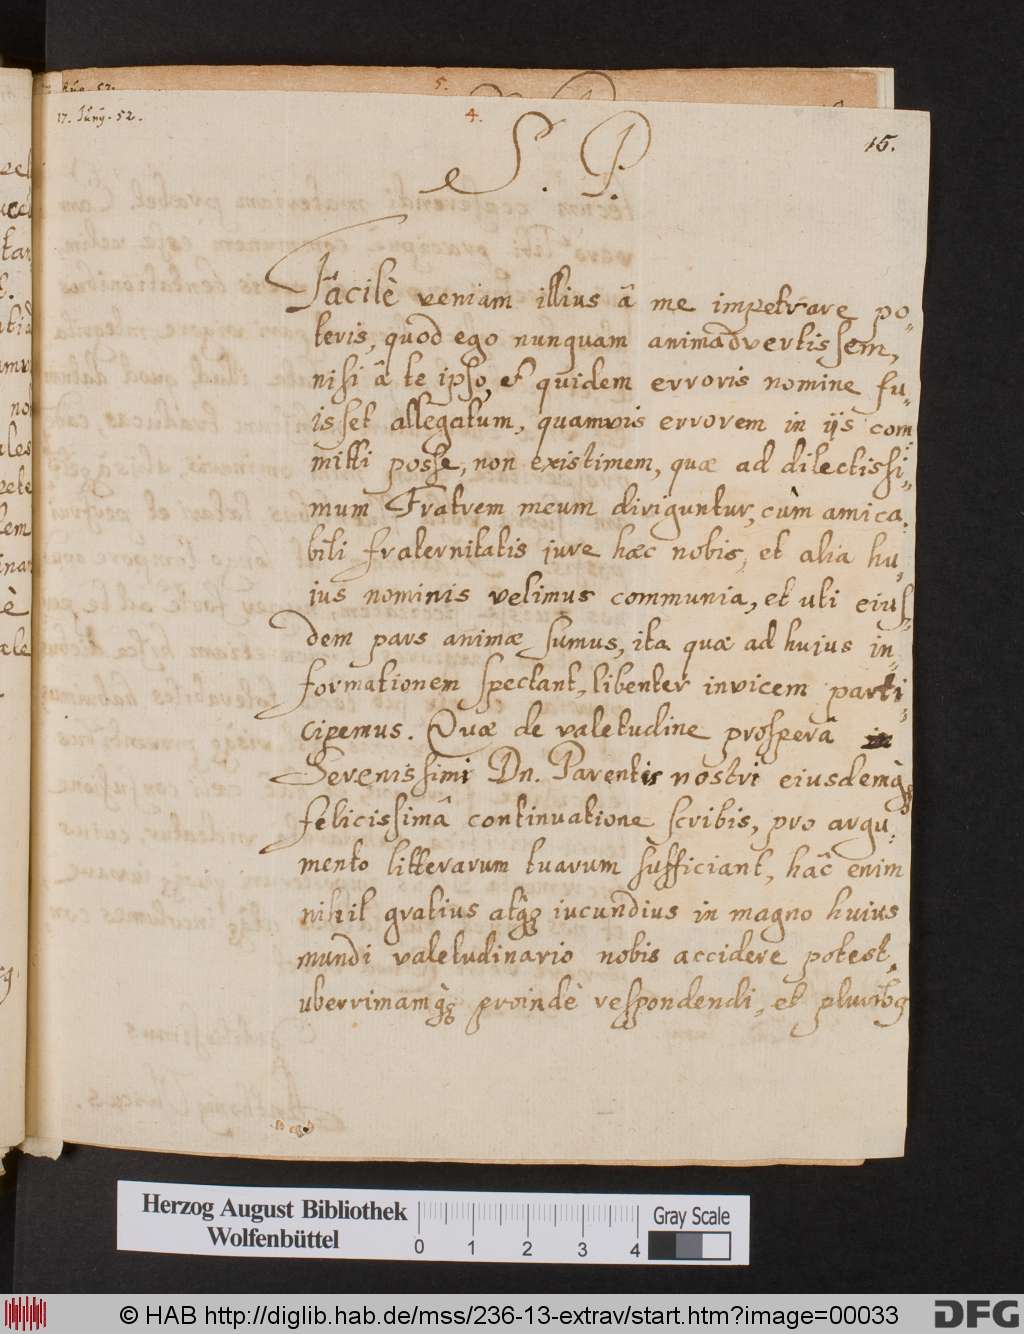 17. Junÿ. 52.
4.
5.
15.
S. P.
Facilè veniam illius â me impetrare po-
teris, quod ego nunquam animadvertissem,
nisi â te ipso, et quidem erroris nomine fu-
isset allegatum, quamvis errorem in ijs com-
mitti posse, non existimem, quæ ad dilectissi-
mum Fratrem meum diriguntur, cùm amica-
bili fraternitatis jure hæc nobis, et alia hu-
jus nominis velimus communia, et uti eius-
dem pars animæ sumus, ita quæ ad huius in-
formationem spectant, libenter invicem parti-
cipemus. Quæ de valetudine prosperâ
Serenissimi Dn. Parentis nostri eiusdemq̀
felicissimâ continuatione scribis, pro argu-
mento litterarum tuarum sufficiant, hâc enim
nihil gratius atq̀ iucundius in magno huius
mundi valetudinario nobis accidere potest,
uberrimamq̀ proindè respondendi, et pluribq
Herzog August Bibliothek
Wolfenbüttel
0 1 2 3 4
Gray Scale
© HAB http://diglib.hab.de/mss/236-13-extrav/start.htm?image=00033
DFG